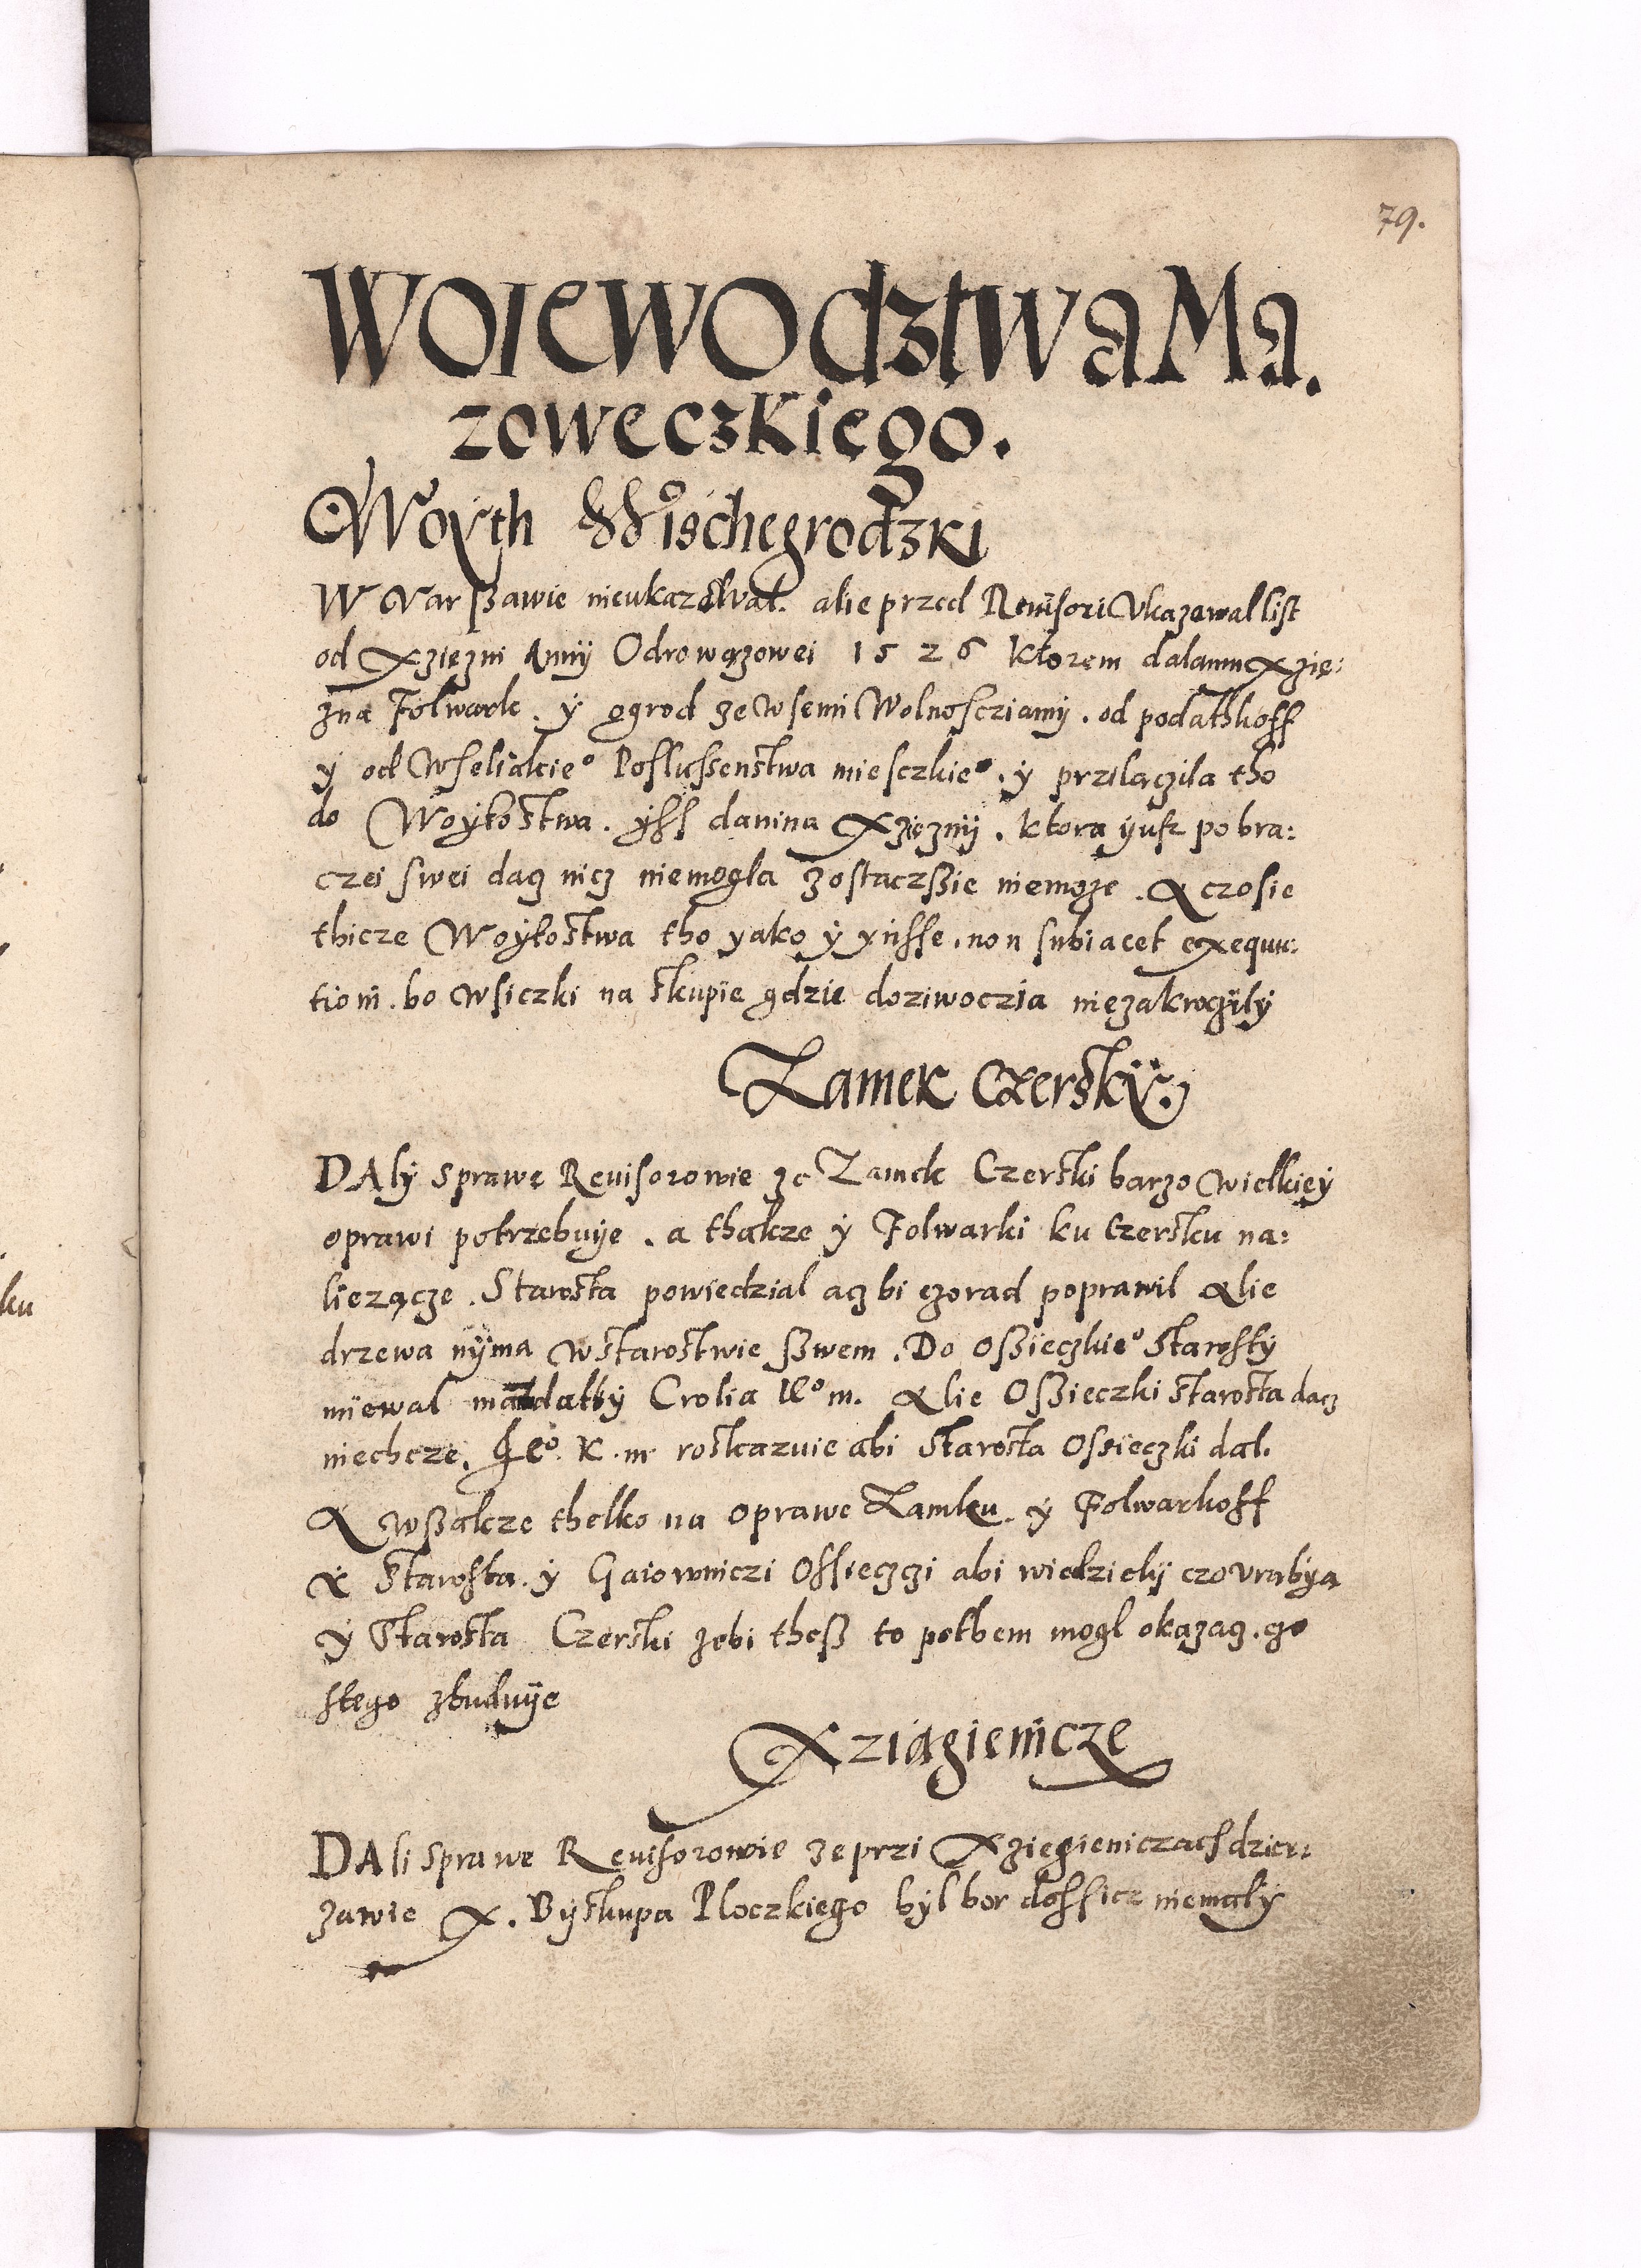 79.
WOIEWOdztwa Ma.
zoweczkiego.
Woyth Wischegrodzki
W Varßawie nieukazowal. alie przed Revisori Ukazowal list
od Xziezni Anny Odrowązowei 1526 Ktorem dalamu xzię:
zna Folwark. ÿ ogrod ze wsemi Wolnosciamy. od podatkoff
ÿ od Wseliakie° Poslussenstwa miesczkie°. ÿ przilączila tho
do Woytostwa. ÿss danina Xzięznÿ. Ktora ÿusz po bra:
czei swei dacz nicz niemogla zostaczßie niemoze. A czosie
thicze Woytostwa tho yako ÿ ynsse. non subiacet exequu:
tioni. bo wsiczki na skupie gdzie doziwoczia niezakroczyly
Zamek Czerskÿ.
DAlÿ sprawe Revisorowie ze Zamek Czerski barzo wielkieÿ
oprawi potrzebuÿe. a thakze ÿ Folwarki ku Czersku na:
liezącze. Starosta powiedzial acz bi czorad poprawil Alie
drzewa nÿma w starostwie ßwem. Do Oßieczkie° Starosty
miewal mandathy Crolia Je° m. Alie Oßieczki starosta dacz
niechcze. Je° K. m. roskazuie abi Starosta Ossieczki dal.
A wßakze thelko na oprawe Zamku. ÿ Folwarkoff
A Starosta. ÿ Gaiowniczi Ossieczczi abi wiedzielÿ czo vrabÿa
ÿ Starosta Czerski zebi theß to pothem mogl okazacz. czo
stego zbuduÿe
Xziągienicze
DAli sprawe Revisorowie ze przi Xziegieniczach dzier:
zawie X. Byskupa Ploczkiego bÿl bor dossicz niemalÿ
ku